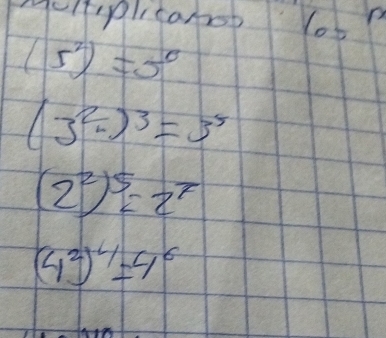 multiplicamos los
(5²) = 5⁶
(3²)³ = 3⁵
(2²)⁵ = 2⁷
(4²)⁴ = 4⁶